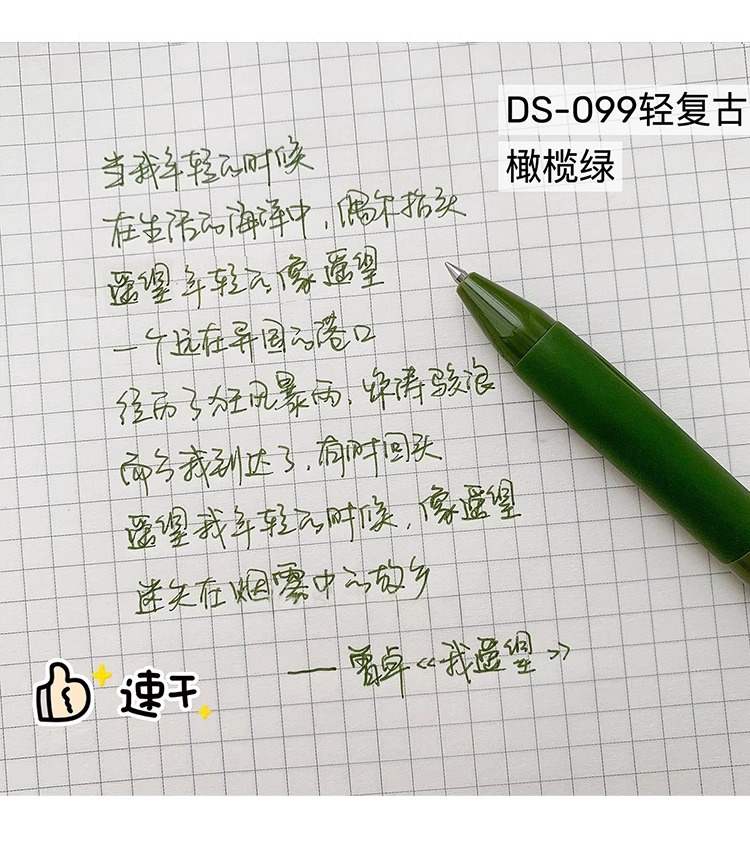 DS-099轻复古
橄榄绿
当我年轻的时候
在生活的海洋中，偶尔抬头
遥望年轻的像遥望
一个远在异国的港口
经历了狂风暴雨，惊涛骇浪
而今我到达了，有时回头
遥望我年轻的时候，像遥望
迷失在烟雾中的故乡
——曾卓《我遥望》
速干